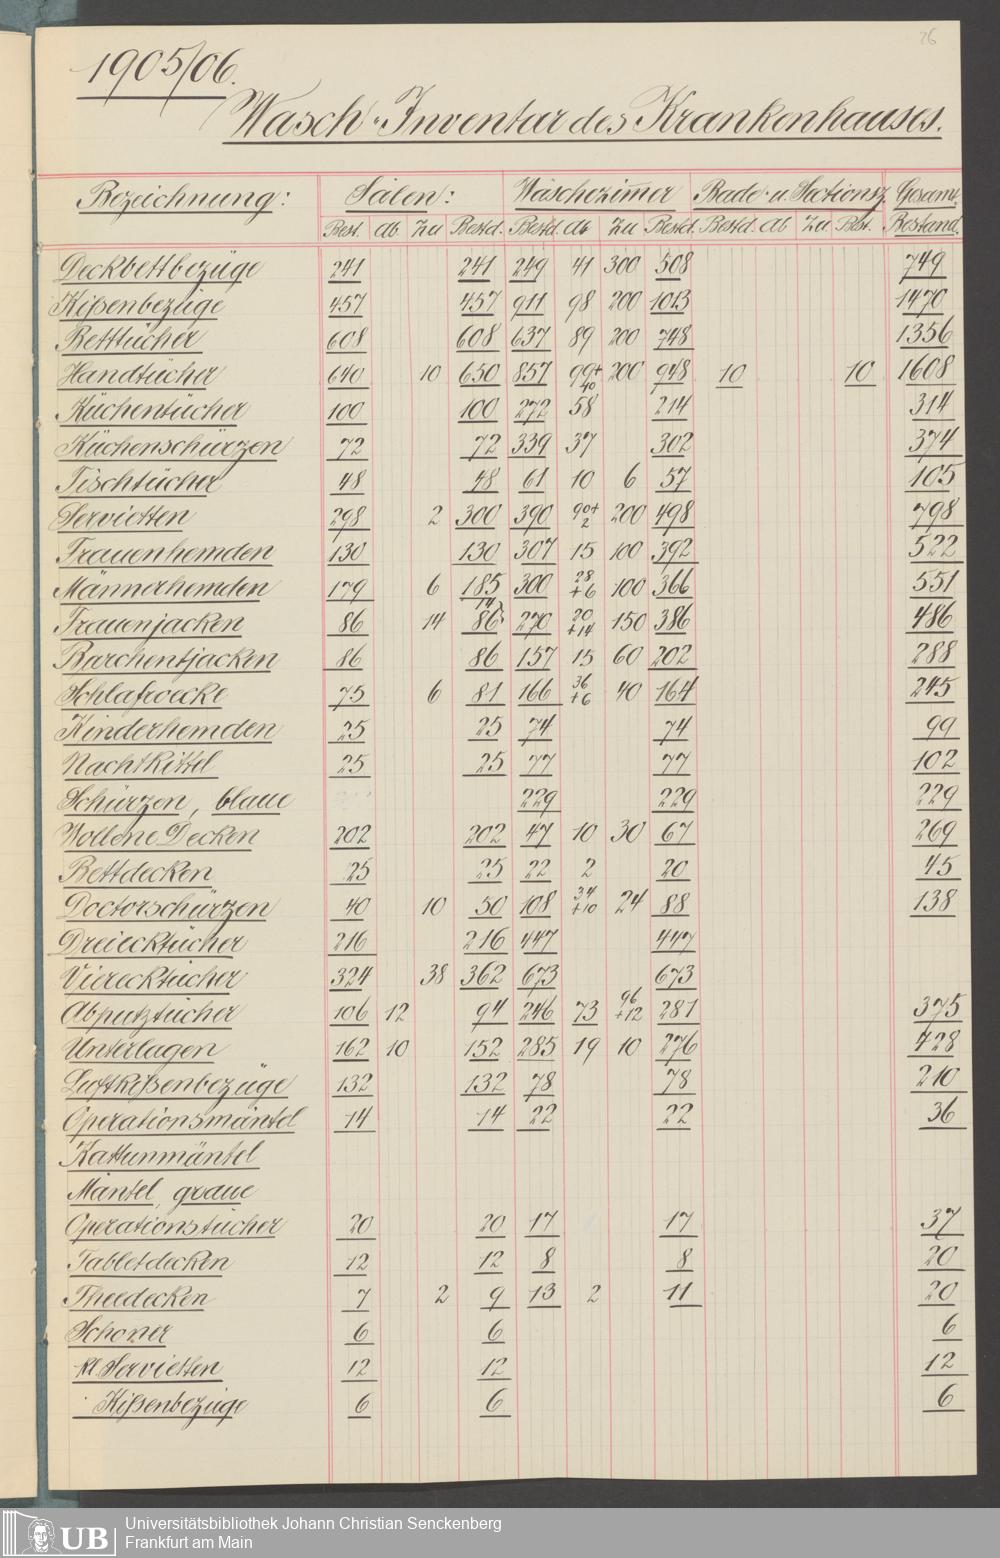 26
1905/06.
Wasch-Inventar des Krankenhauses.
Bezeichnung: Sälen: Wäschezimer Bade- u. Sectionsz. Gesamt-
Best. ab Zu Bestd. Bestd. ab Zu Bestd. Bestd. ab Zu Best. Bestand.
Deckbettbezüge 241 241 249 41 300 508 749
Kißenbezüge 457 457 911 98 200 1013 1470
Betttücher 608 608 637 89 200 748 1356
Handtücher 640 10 650 857 99+10 200 948 10 10 1608
Küchentücher 100 100 272 58 214 314
Küchenschürzen 72 72 339 37 302 374
Tischtücher 48 48 61 10 6 57 105
Servietten 298 2 300 390 90+2 200 498 798
Frauenhemden 130 130 307 15 100 392 522
Männerhemden 179 6 185 300 28+6 100 366 551
Frauenjacken 86 14 14 86 270 20+14 150 386 486
Barchentjacken 86 86 157 15 60 202 288
Schlafroecke 75 6 81 166 36+6 40 164 245
Kinderhemden 25 25 74 74 99
Nachtkittel 25 25 77 77 102
Schürzen, blaue 229 229 229
Wollene Decken 202 202 47 10 30 67 269
Bettdecken 25 25 22 2 20 45
Doctorschürzen 40 10 50 108 34+10 24 88 138
Dreiecktücher 216 216 447 447
Vierecktücher 324 38 362 673 673
Abputztücher 106 12 94 246 73 96+12 281 375
Unterlagen 162 10 152 285 19 10 276 428
Luftkißenbezüge 132 132 78 78 210
Operationsmäntel 14 14 22 22 36
Kattunmäntel
Mäntel, graue
Operationstücher 20 20 17 17 37
Tabletdecken 12 12 8 8 20
Theedecken 7 2 9 13 2 11 20
Schoner 6 6 6
kl. Servietten 12 12 12
" Kißenbezüge 6 6 6
UB Universitätsbibliothek Johann Christian Senckenberg
Frankfurt am Main